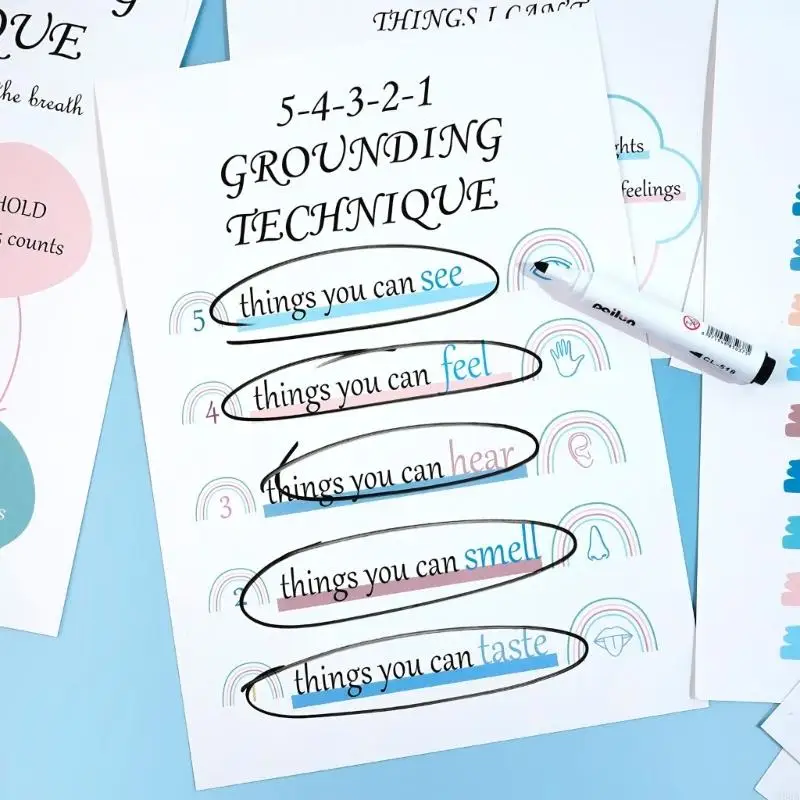 QUE
the breath
HOLD
counts
THINGS I CAN'T
5-4-3-2-1
GROUNDING
TECHNIQUE
5 things you can see
4 things you can feel
3 things you can hear
2 things you can smell
things you can taste
feelings
CL-518